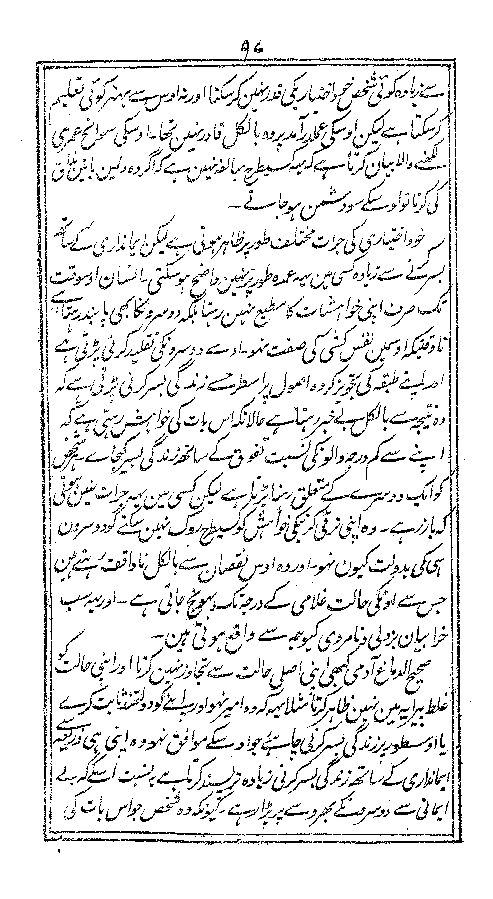 ٩٦
سے زیادہ کوئی شخص خود اختیاریکی قدر نہین کرسکتا اور نہ اوس سے بہتر کوئی تعلیم
کرسکتا ہے لیکن اوسکی عملدرآمد پر وہ بالکل قادر نہین تھا۔ اوسکی سوانح عمری
لکھنے والا بیان کرتا ہے کہ یہ کسیطرح مبالغہ نہین ہے کہ اگر وہ دلمین باتین مذاق
کی کرتا تو اوسکے سو دشمن ہوجاتے۔
خود اختیاری کی جرات مختلف طور پر ظاہر ہوتی ہے لیکن ایمانداری کے ساتھ
بسر کرنے سے زیادہ کسی مین یہ عمدہ طور پر نہین واضح ہوسکتی۔ انسان اوسوقت
تک صرف اپنی خواہشات کا مطیع نہین رہتا بلکہ دوسرونکا بھی پابند رہتا ہے
تاوقتیکہ اوسمین نفس کشی کی صفت نہو۔ اوسے دوسرونکی تقلید کرنی پڑتی ہے
اور اپنے طبقہ کی تجویز کردہ اصول پر اسطرح سے زندگی بسر کرنی پڑتی ہے کہ
وہ نتیجہ سے بالکل بے خبر رہتا ہے حالانکہ اس بات کی خواہش رہتی ہے کہ
اپنے سے کم درجہ والونکی نسبت تفوق کے ساتھ زندگی بسر کیجاے۔ ہر شخص
کو ایک دوسرے کے متعلق رہنا پڑتا ہے لیکن کسی مین یہ جرات نہین ہوتی
کہ باز رہے۔ وہ اپنی ترقی کرنیکی خواہش کو کسیطرح روک نہین سکتے گو دوسرون
ہی کی بدولت کیون نہو۔ اور وہ اوس نقصان سے بالکل ناواقف رہتے ہین
جس سے اونکی حالت غلامی کے درجہ تک پہونچ جاتی ہے۔ اور یہ سب
خرابیان بزدلی و نامردی کیوجہ سے واقع ہوتی ہین۔
صحیح الدماغ آدمی کبھی اپنی اصلی حالت سے تجاوز نہین کرتا اور اپنی حالت کو
غلط پیرایہ مین نہین ظاہر کرتا مثلاً یہ کہ وہ امیر نہو اور اپنے کو دولتمند ثابت کرے
یا اوسطور پر زندگی بسر کرنی چاہئے جو اوسکے موافق نہو وہ اپنی ہی ذریعہ سے
ایمانداری کے ساتھ زندگی بسر کرنی زیادہ تر پسند کرتا ہے بہ نسبت اسکے کہ بے
ایمانی سے دوسرونکے بھروسے پر پڑا رہے۔ کیونکہ وہ شخص جو اس بات کی